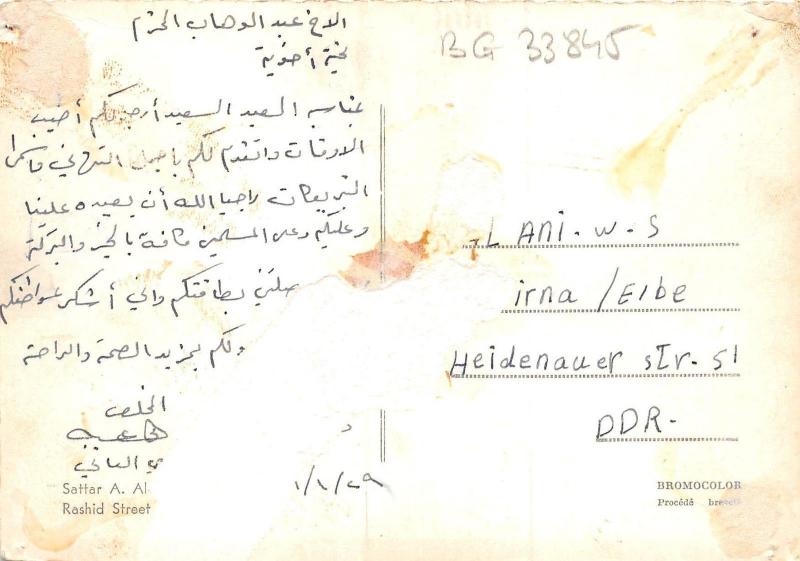 الاخ عبد الوهاب المحترم
تحية أخوية
بمناسبة العيد السعيد أرجو لكم أطيب
الاوقات واتقدم لكم بأجمل التهاني واسمى
التبريكات راجيا الله أن يعيده علينا
وعليكم وعلى المسلمين كافة بالخير والبركة
بطاقتكم واني أشكر عواطفكم
ولكم بمزيد الصحة والراحة
المخلص
العاني
Sattar A. Al
Rashid Street
BG 33845
LAni. W. S
irna / Elbe
Heidenauer str. 51
DDR.
BROMOCOLOR
Procédé breveté